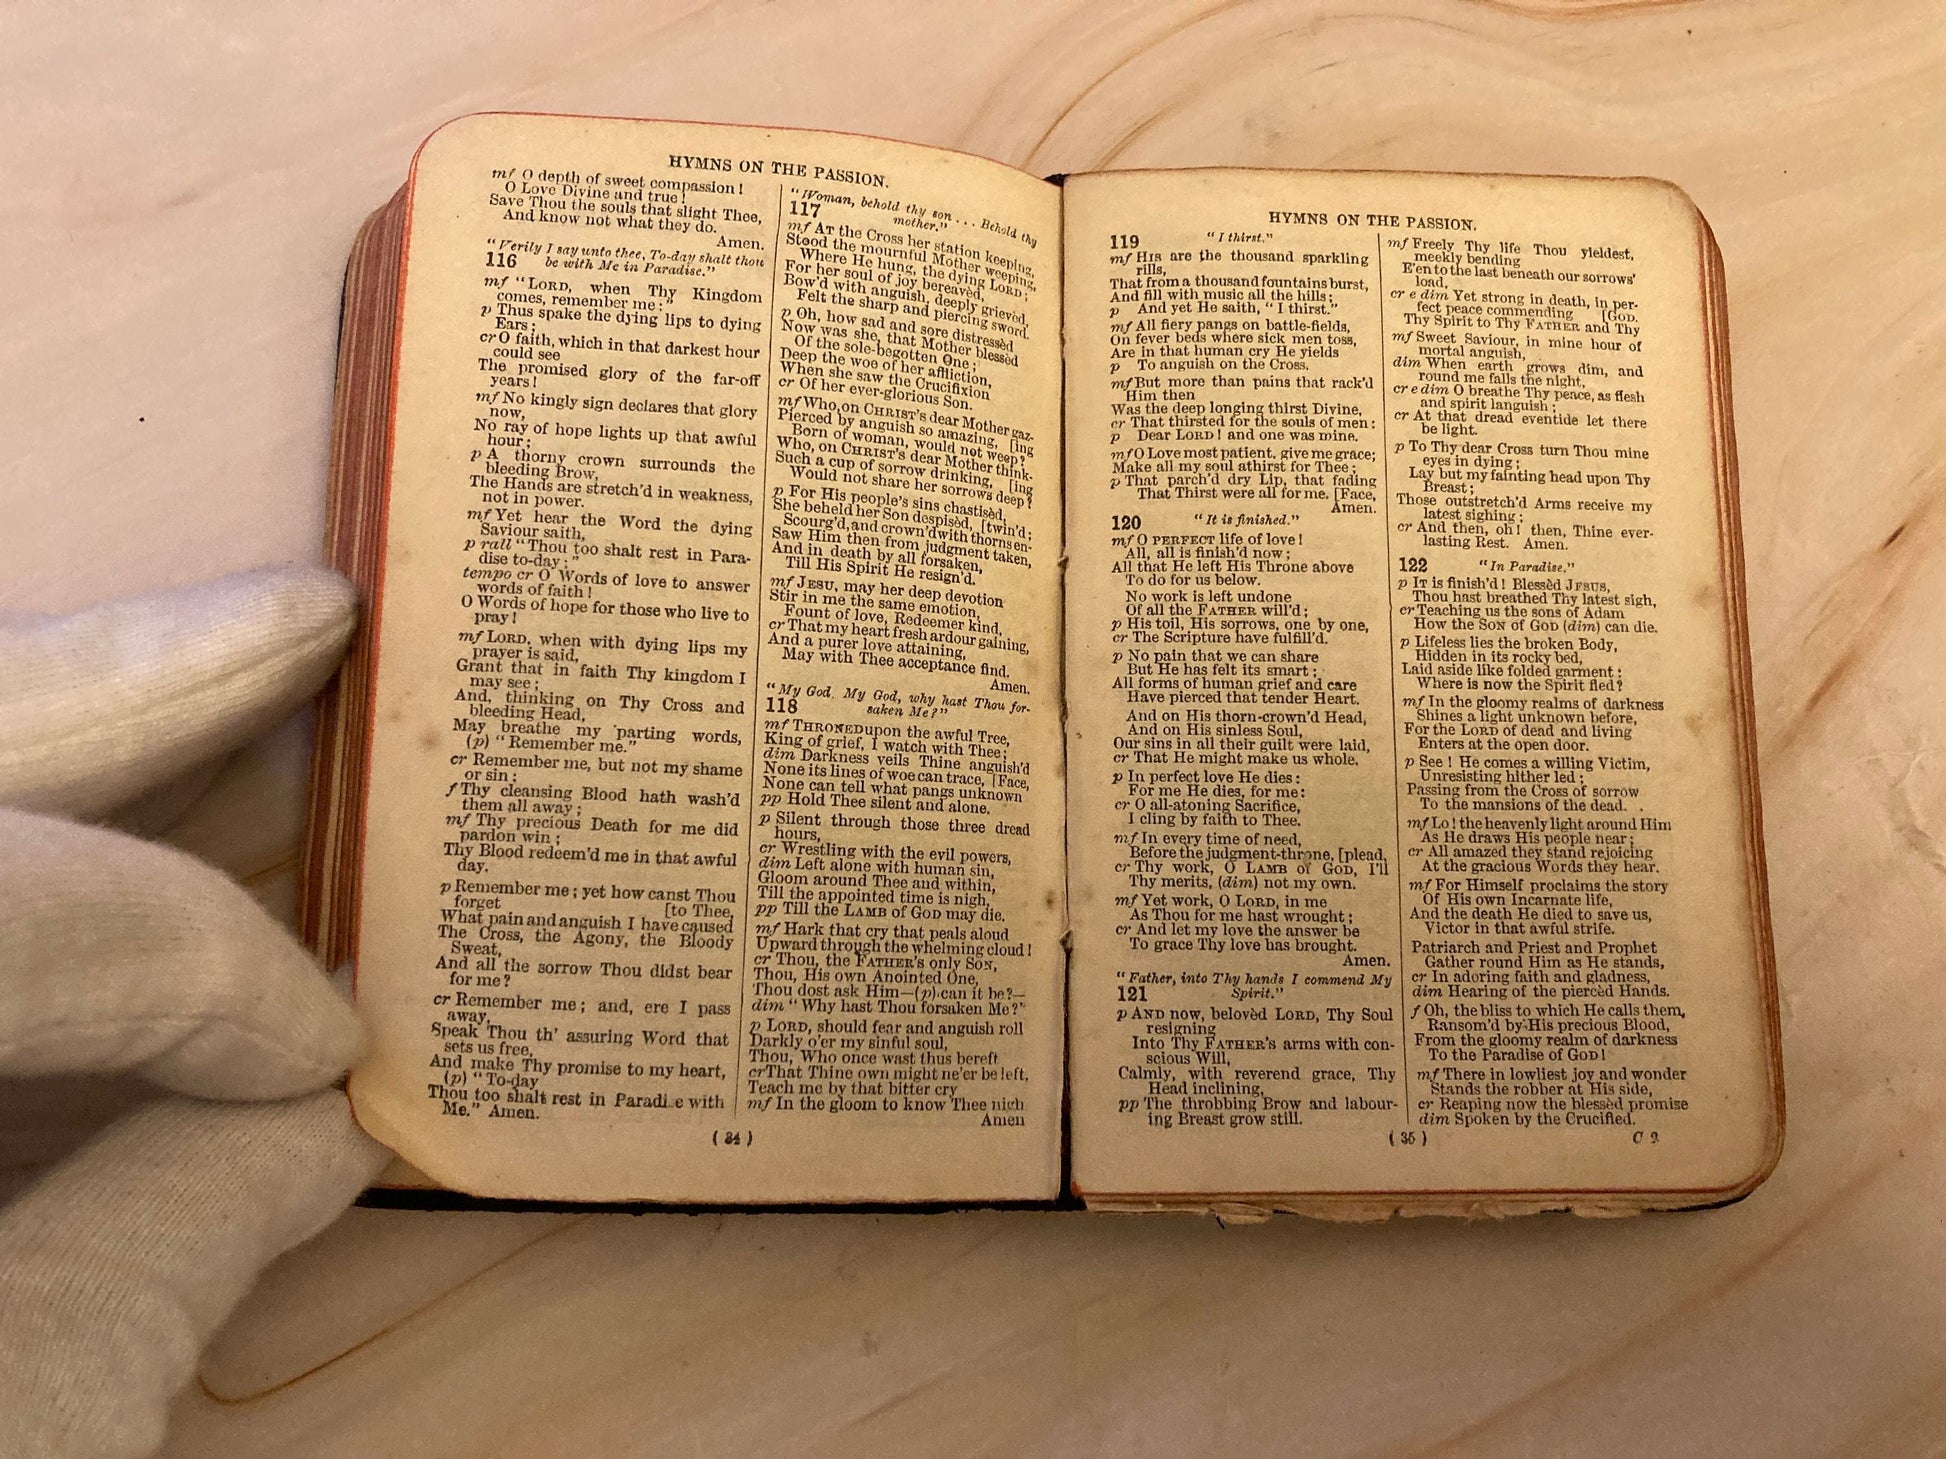 HYMNS ON THE PASSION.
mf O depth of sweet compassion!
O Love Divine and true!
Save Thou the souls that slight Thee,
And know not what they do.
Amen.
"Verily I say unto thee, To-day shalt thou
116 be with Me in Paradise."
mf "LORD, when Thy Kingdom
comes, remember me:"
p Thus spake the dying lips to dying
Ears;
cr O faith, which in that darkest hour
could see
The promised glory of the far-off
years!
mf No kingly sign declares that glory
now,
No ray of hope lights up that awful
hour;
p A thorny crown surrounds the
bleeding Brow,
The Hands are stretch'd in weakness,
not in power.
mf Yet hear the Word the dying
Saviour saith,
p rall "Thou too shalt rest in Para-
dise to-day;"
tempo cr O Words of love to answer
words of faith!
O Words of hope for those who live to
pray!
mf LORD, when with dying lips my
prayer is said,
Grant that in faith Thy kingdom I
may see;
And, thinking on Thy Cross and
bleeding Head,
May breathe my parting words,
(p) "Remember me."
cr Remember me, but not my shame
or sin;
f Thy cleansing Blood hath wash'd
them all away;
mf Thy precious Death for me did
pardon win;
Thy Blood redeem'd me in that awful
day.
p Remember me; yet how canst Thou
forget [to Thee,
What pain and anguish I have caused
The Cross, the Agony, the Bloody
Sweat,
And all the sorrow Thou didst bear
for me?
cr Remember me; and, ere I pass
away,
Speak Thou th' assuring Word that
sets us free,
And make Thy promise to my heart,
(p) "To-day
Thou too shalt rest in Paradise with
Me." Amen.
"Woman, behold thy son . . . Behold thy
117 mother."
mf AT the Cross her station keeping,
Stood the mournful Mother weeping,
Where He hung, the dying LORD;
For her soul of joy bereavèd,
Bow'd with anguish, deeply grievèd,
Felt the sharp and piercing sword.
p Oh, how sad and sore distressèd
Now was she, that Mother blessèd
Of the sole-begotten One;
Deep the woe of her affliction,
When she saw the Crucifixion
cr Of her ever-glorious Son.
mf Who, on CHRIST'S dear Mother gaz-
Pierced by anguish so amazing, [ing
Born of woman, would not weep?
Who, on CHRIST'S dear Mother think-
Such a cup of sorrow drinking, [ing
Would not share her sorrows deep?
p For His people's sins chastisèd,
She beheld her Son despisèd, [twin'd;
Scourg'd, and crown'd with thorns en-
Saw Him then from judgment taken,
And in death by all forsaken,
Till His Spirit He resign'd.
mf JESU, may her deep devotion
Stir in me the same emotion,
Fount of love, Redeemer kind,
cr That my heart fresh ardour gaining,
And a purer love attaining,
May with Thee acceptance find.
Amen.
"My God, My God, why hast Thou for-
118 saken Me?"
mf THRONED upon the awful Tree,
King of grief, I watch with Thee;
dim Darkness veils Thine anguish'd
None its lines of woe can trace, [Face,
None can tell what pangs unknown
pp Hold Thee silent and alone.
p Silent through those three dread
hours,
cr Wrestling with the evil powers,
dim Left alone with human sin,
Gloom around Thee and within,
Till the appointed time is nigh,
pp Till the LAMB of GOD may die.
mf Hark that cry that peals aloud
Upward through the whelming cloud!
cr Thou, the FATHER'S only SON,
Thou, His own Anointed One,
Thou dost ask Him—(p) can it be?—
dim "Why hast Thou forsaken Me?"
p LORD, should fear and anguish roll
Darkly o'er my sinful soul,
Thou, Who once wast thus bereft
cr That Thine own might ne'er be left,
Teach me by that bitter cry
mf In the gloom to know Thee nigh
Amen
( 34 )
HYMNS ON THE PASSION.
119 "I thirst."
mf HIS are the thousand sparkling
rills,
That from a thousand fountains burst,
And fill with music all the hills;
p And yet He saith, "I thirst."
mf All fiery pangs on battle-fields,
On fever beds where sick men toss,
Are in that human cry He yields
p To anguish on the Cross.
mf But more than pains that rack'd
Him then
Was the deep longing thirst Divine,
cr That thirsted for the souls of men:
p Dear LORD! and one was mine.
mf O Love most patient, give me grace;
Make all my soul athirst for Thee;
p That parch'd dry Lip, that fading
That Thirst were all for me. [Face,
Amen.
120 "It is finished."
mf O PERFECT life of love!
All, all is finish'd now;
All that He left His Throne above
To do for us below.
No work is left undone
Of all the FATHER will'd;
p His toil, His sorrows, one by one,
cr The Scripture have fulfill'd.
p No pain that we can share
But He has felt its smart;
All forms of human grief and care
Have pierced that tender Heart.
And on His thorn-crown'd Head,
And on His sinless Soul,
Our sins in all their guilt were laid,
cr That He might make us whole.
p In perfect love He dies:
For me He dies, for me:
cr O all-atoning Sacrifice,
I cling by faith to Thee.
mf In every time of need,
Before the judgment-throne, [plead,
cr Thy work, O LAMB of GOD, I'll
Thy merits, (dim) not my own.
mf Yet work, O LORD, in me
As Thou for me hast wrought;
cr And let my love the answer be
To grace Thy love has brought.
Amen.
"Father, into Thy hands I commend My
121 Spirit."
p AND now, belovèd LORD, Thy Soul
resigning
Into Thy FATHER'S arms with con-
scious Will,
Calmly, with reverend grace, Thy
Head inclining,
pp The throbbing Brow and labour-
ing Breast grow still.
mf Freely Thy life Thou yieldest,
meekly bending
E'en to the last beneath our sorrows'
load,
cr e dim Yet strong in death, in per-
fect peace commending [GOD.
Thy Spirit to Thy FATHER and Thy
mf Sweet Saviour, in mine hour of
mortal anguish,
dim When earth grows dim, and
round me falls the night,
cr e dim O breathe Thy peace, as flesh
and spirit languish;
cr At that dread eventide let there
be light.
p To Thy dear Cross turn Thou mine
eyes in dying;
Lay but my fainting head upon Thy
Breast;
Those outstretch'd Arms receive my
latest sighing;
cr And then, oh! then, Thine ever-
lasting Rest. Amen.
122 "In Paradise."
p IT is finish'd! Blessèd JESUS,
Thou hast breathed Thy latest sigh,
cr Teaching us the sons of Adam
How the SON of GOD (dim) can die.
p Lifeless lies the broken Body,
Hidden in its rocky bed,
Laid aside like folded garment:
Where is now the Spirit fled?
mf In the gloomy realms of darkness
Shines a light unknown before,
For the LORD of dead and living
Enters at the open door.
p See! He comes a willing Victim,
Unresisting hither led;
Passing from the Cross of sorrow
To the mansions of the dead.
mf Lo! the heavenly light around Him
As He draws His people near;
cr All amazed they stand rejoicing
At the gracious Words they hear.
mf For Himself proclaims the story
Of His own Incarnate life,
And the death He died to save us,
Victor in that awful strife.
Patriarch and Priest and Prophet
Gather round Him as He stands,
cr In adoring faith and gladness,
dim Hearing of the piercèd Hands.
f Oh, the bliss to which He calls them,
Ransom'd by His precious Blood,
From the gloomy realm of darkness
To the Paradise of GOD!
mf There in lowliest joy and wonder
Stands the robber at His side,
cr Reaping now the blessèd promise
dim Spoken by the Crucified.
( 35 )
C 2